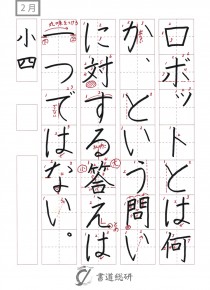 2月
ロボットとは何
か、という問い
に対する答えは
一つではない。
小四
書道総研